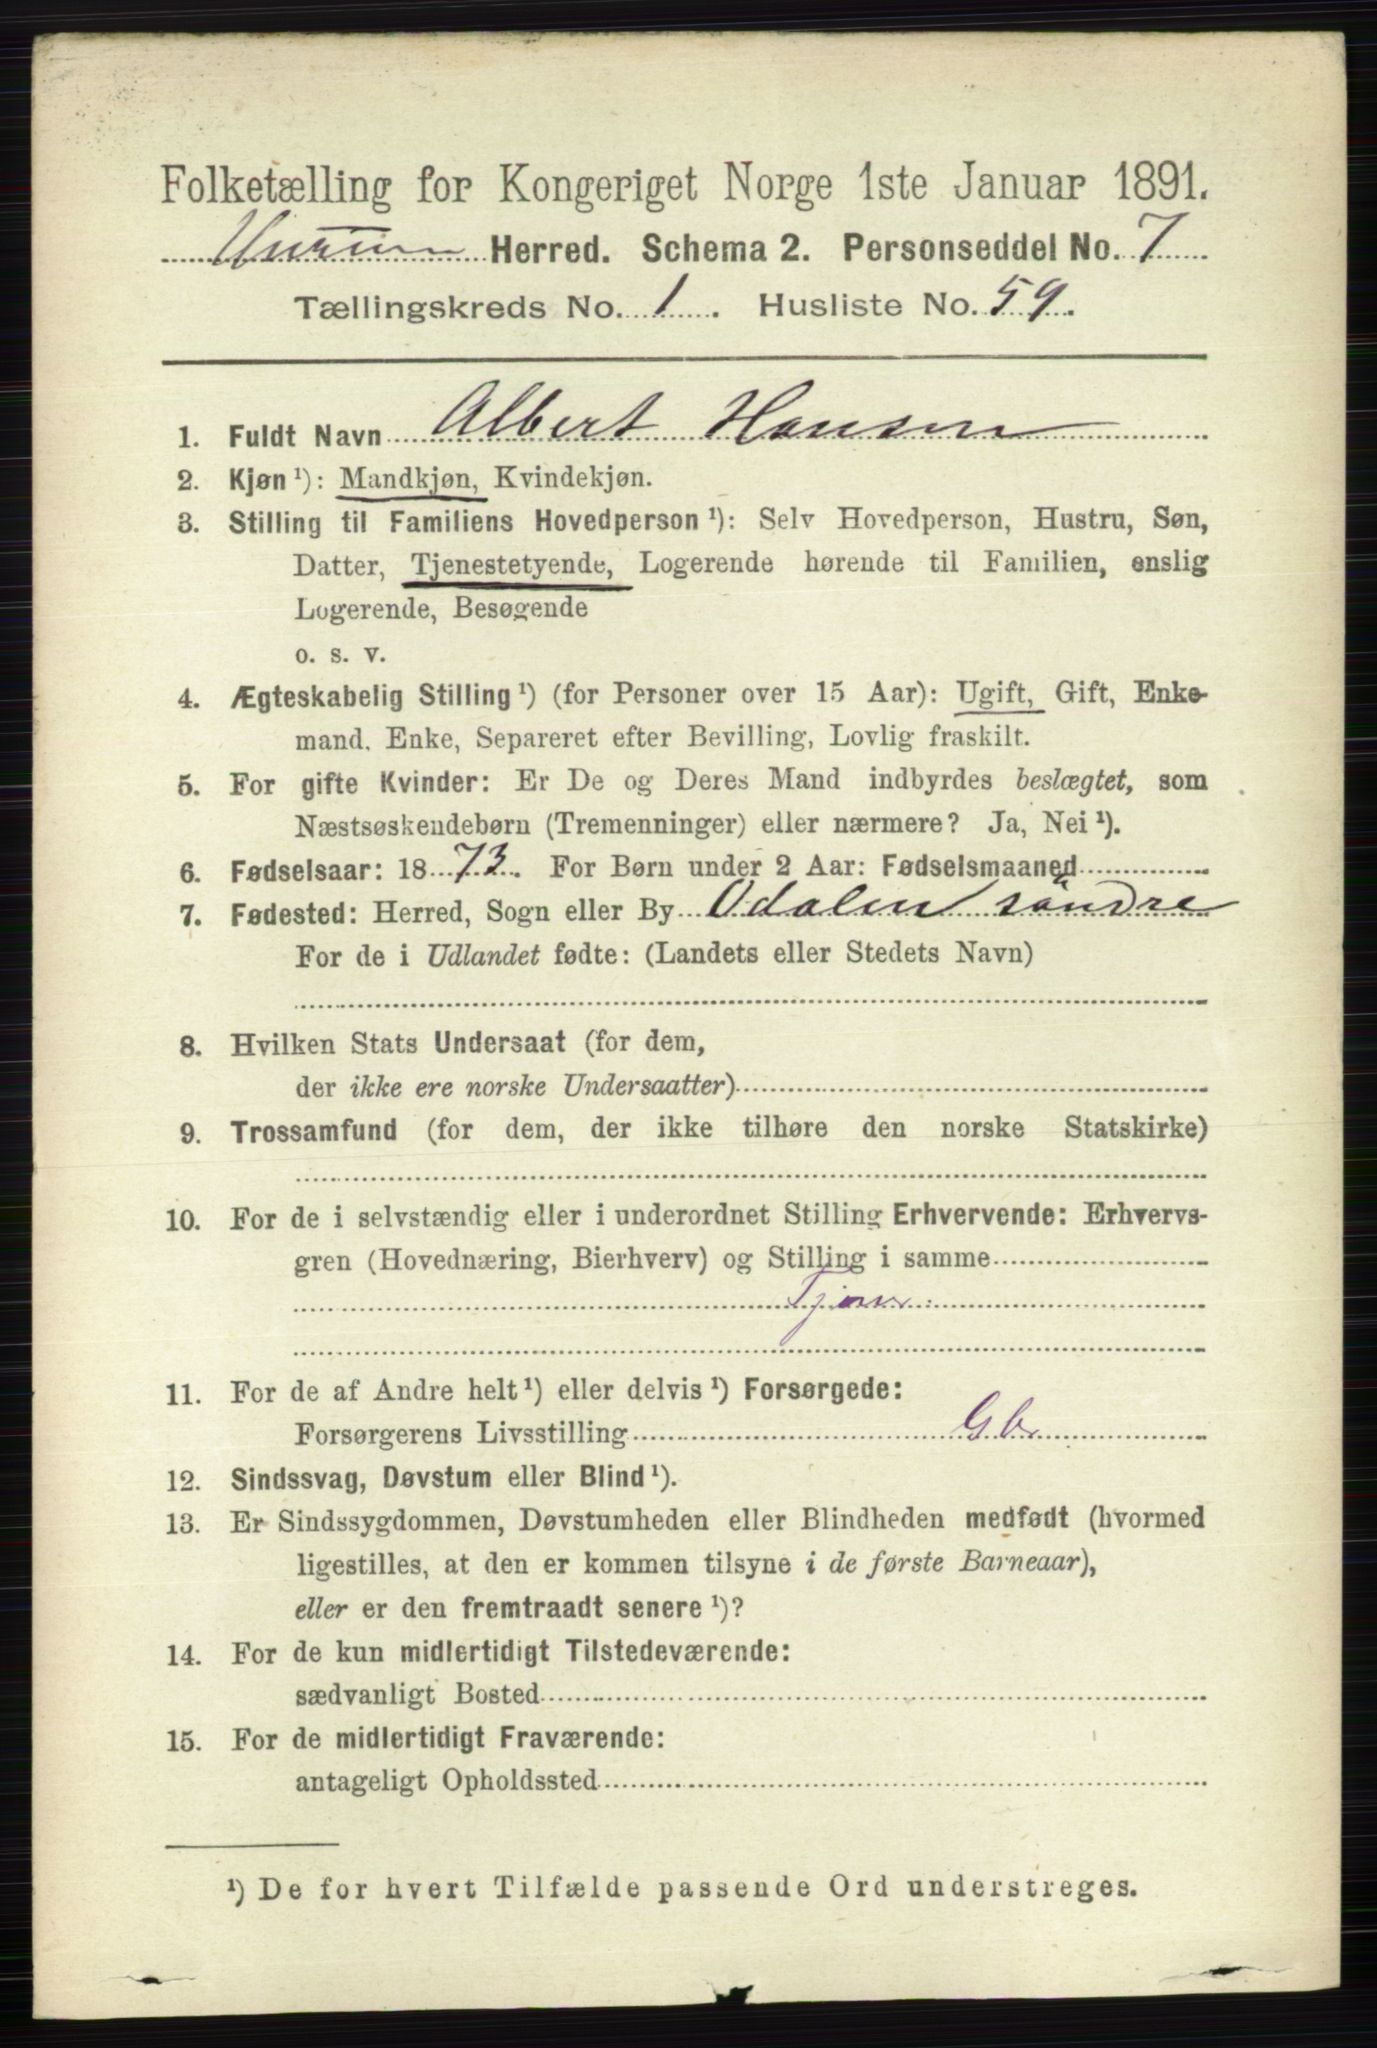 Folketælling for Kongeriget Norge 1ste Januar 1891.
Hurum Herred. Schema 2. Personseddel No. 7
Tællingskreds No. 1. Husliste No. 59.
1. Fuldt Navn Albert Hansen
2. Kjøn ¹): Mandkjøn, Kvindekjøn.
3. Stilling til Familiens Hovedperson ¹): Selv Hovedperson, Hustru, Søn,
Datter, Tjenestetyende, Logerende hørende til Familien, enslig
Logerende, Besøgende
o. s. v.
4. Ægteskabelig Stilling ¹) (for Personer over 15 Aar): Ugift, Gift, Enke-
mand, Enke, Separeret efter Bevilling, Lovlig fraskilt.
5. For gifte Kvinder: Er De og Deres Mand indbyrdes beslægtet, som
Næstsøskendebørn (Tremenninger) eller nærmere? Ja, Nei ¹).
6. Fødselsaar: 1873. For Børn under 2 Aar: Fødselsmaaned
7. Fødested: Herred, Sogn eller By Odalen søndre
For de i Udlandet fødte: (Landets eller Stedets Navn)
8. Hvilken Stats Undersaat (for dem,
der ikke ere norske Undersaatter)
9. Trossamfund (for dem, der ikke tilhøre den norske Statskirke)
10. For de i selvstændig eller i underordnet Stilling Erhvervende: Erhvervs-
gren (Hovednæring, Bierhverv) og Stilling i samme
11. For de af Andre helt ¹) eller delvis ¹) Forsørgede:
Forsørgerens Livsstilling Gbr
12. Sindssvag, Døvstum eller Blind ¹).
13. Er Sindssygdommen, Døvstumheden eller Blindheden medfødt (hvormed
ligestilles, at den er kommen tilsyne i de første Barneaar),
eller er den fremtraadt senere ¹)?
14. For de kun midlertidigt Tilstedeværende:
sædvanligt Bosted
15. For de midlertidigt Fraværende:
antageligt Opholdssted
¹) De for hvert Tilfælde passende Ord understreges.